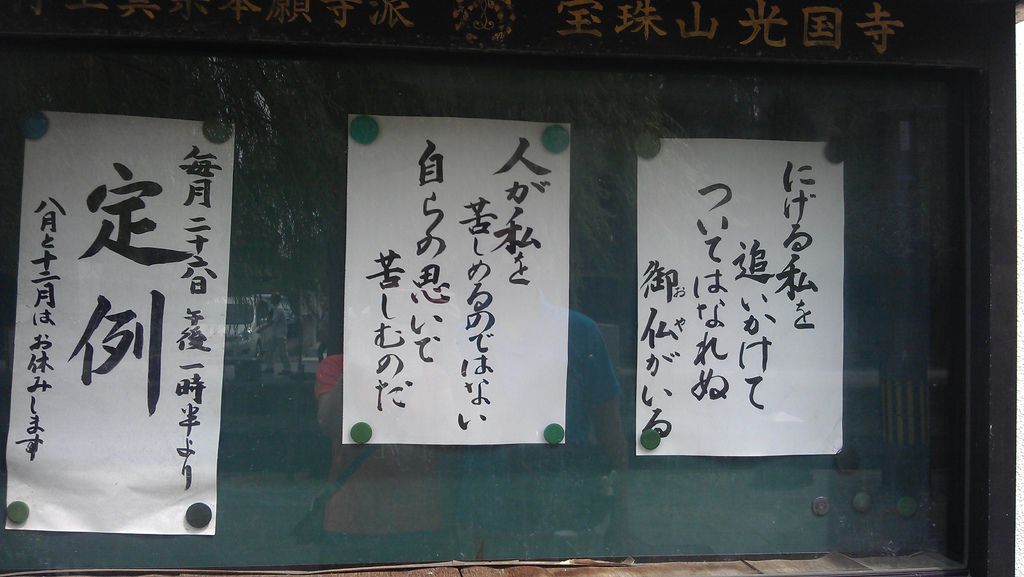 土真宗本願寺派 宝珠山光国寺
にげる私を
追いかけて
ついてはなれぬ
御仏がいる
おや
人が私を
苦しめるのではない
自らの思いで
苦しむのだ
毎月二十六日 午後一時半より
定例
八月と十二月はお休みします